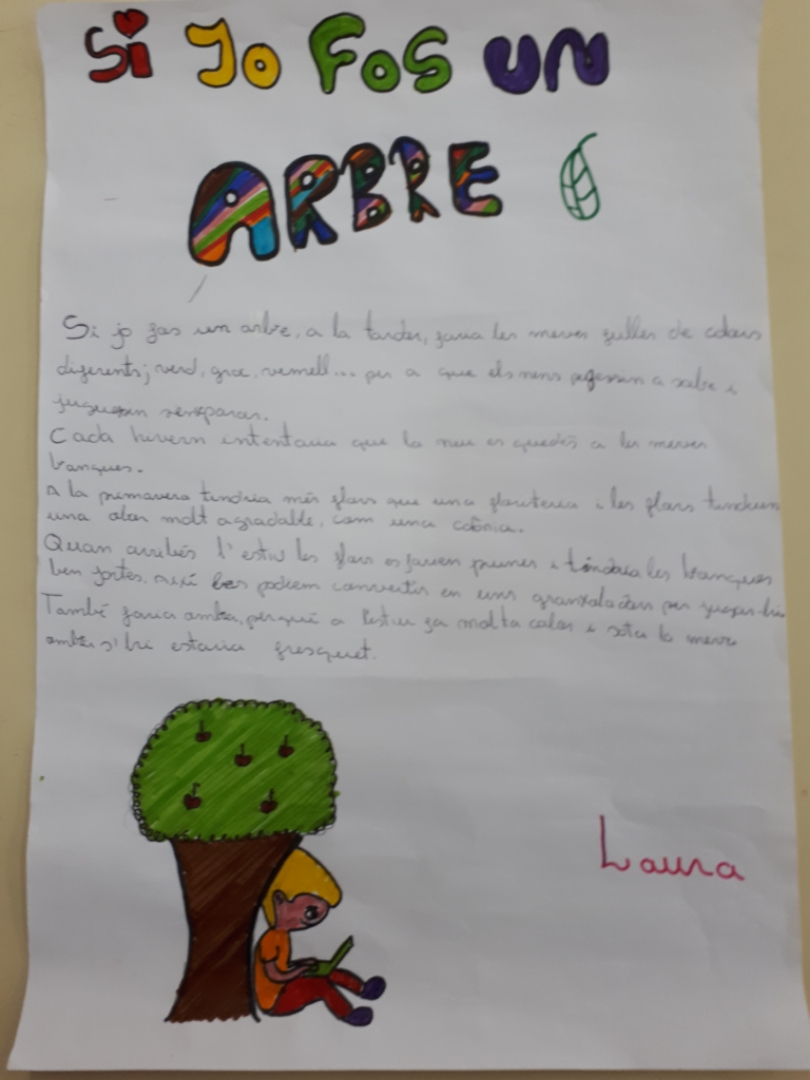 Si Jo Fos UN
ARBRE
Si jo fos un arbre, a la tardor, faria les meves fulles de colors
diferents; verd, groc, vermell... per a que els nens a saltar i
juguessin
Cada hivern intentaria que la neu es quedés a les meves
branques.
A la primavera tindria més flors que una floristeria i les flors tindrien
una olor molt agradable, com una colònia.
Quan arribés l'estiu les flors es farien prunes i tindria les branques
ben fortes. Així es podrien convertir en uns per jugar-hi.
També faria ombra, perquè a l'estiu fa molta calor i sota la meva
ombra s'hi estaria fresquet.
Laura